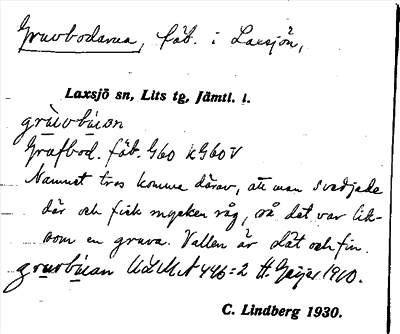 Gruvbodarna, fäb. i Laxsjön,
Laxsjö sn, Lits tg, Jämtl. l.
grùvbúan
Grufbod. fäb. G60 kG60V
Namnet tros komma därav, att man svedjade
där och fick mycken råg, så det var lik-
som en gruva. Vallen är slät och fin.
gruvbúan ULMA 446:2 H. Geijer 1910.
C. Lindberg 1930.